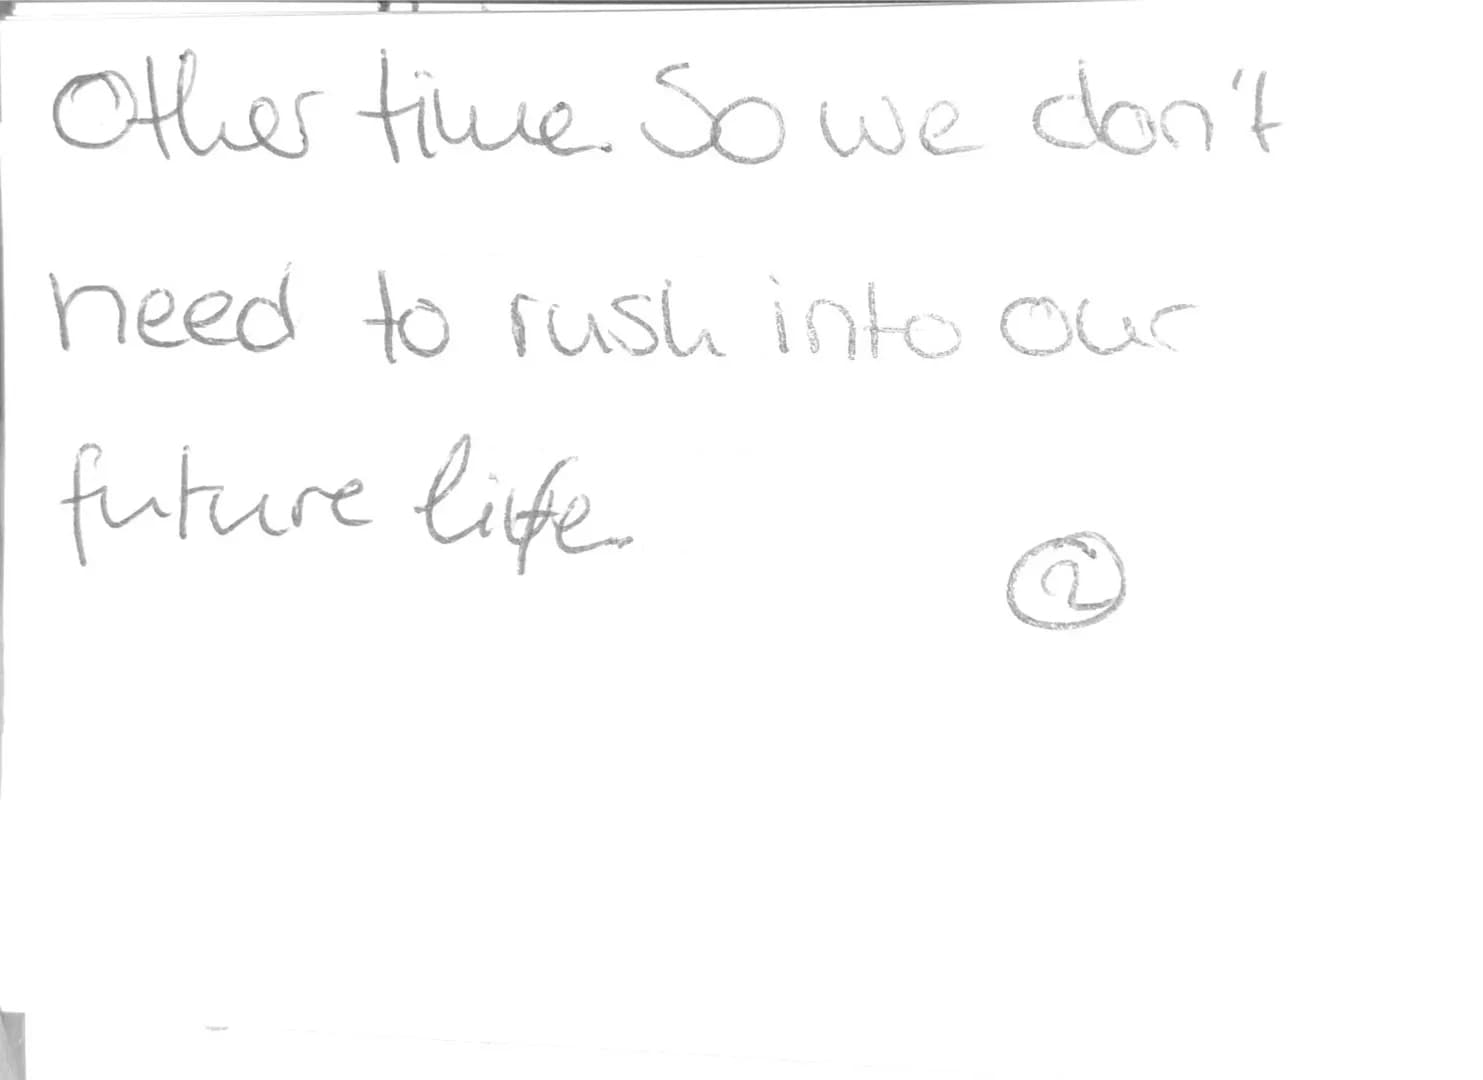 Other time. So we don't
need to rush into our
future life.
2